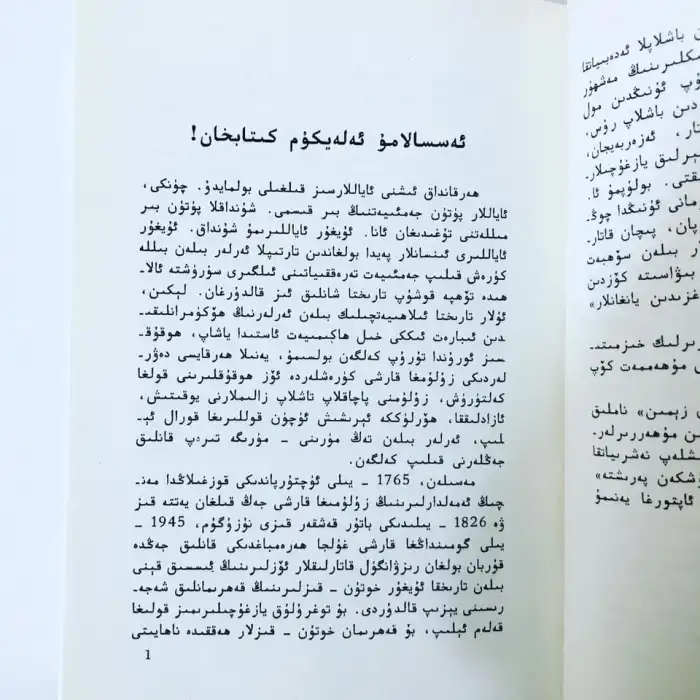 ئەسسالامۇ ئەلەيكۇم كىتابخان!
ھەرقانداق ئىشنى ئاياللارسىز قىلغىلى بولمايدۇ. چۈنكى،
ئاياللار پۈتۈن جەمئىيەتنىڭ بىر قىسمى. شۇنداقلا پۈتۈن بىر
مىللەتنى تۇغىدىغان ئانا. ئۇيغۇر ئاياللىرىمۇ شۇنداق. ئۇيغۇر
ئاياللىرى ئىنسانلار پەيدا بولغاندىن تارتىپلا ئەرلەر بىلەن بىللە
كۈرەش قىلىپ جەمئىيەت تەرەققىياتىنى ئىلگىرى سۈرۈشتە ئالا-
ھىدە تۆھپە قوشۇپ تارىختا شانلىق ئىز قالدۇرغان. لېكىن،
ئۇلار تارىختا ئىلاھىيەتچىلىك بىلەن ئەرلەرنىڭ ھۆكۈمرانلىقى-
دىن ئىبارەت ئىككى خىل ھاكىمىيەت ئاستىدا ياشاپ، ھوقۇق-
سىز ئورۇندا تۇرۇپ كەلگەن بولسىمۇ، يەنىلا ھەرقايسى دەۋر-
لەردىكى زۇلۇمغا قارشى كۈرەشلەردە ئۆز ھوقۇقلىرىنى قولغا
كەلتۈرۈش، زۇلۇمنى پاچاقلاپ تاشلاپ زالىملارنى يوقىتىش،
ئازادلىققا، ھۆرلۈككە ئېرىشىش ئۈچۈن قوللىرىغا قورال ئې-
لىپ، ئەرلەر بىلەن تەڭ مۈرىنى - مۈرىگە تىرەپ قانلىق
جەڭلەرنى قىلىپ كەلگەن.
مەسىلەن، 1765 - يىلى ئۈچتۇرپاندىكى قوزغىلاڭدا مەن-
چىڭ ئەمەلدارلىرىنىڭ زۇلۇمىغا قارشى جەڭ قىلغان يەتتە قىز
ۋە 1826 - يىلىدىكى باتۇر قەشقەر قىزى نۇزۇگۇم، 1945 -
يىلى گومىنداڭغا قارشى غۇلجا ھەرەمباغدىكى قانلىق جەڭدە
قۇربان بولغان رىزۋانگۈل قاتارلىقلار ئۆزلىرىنىڭ ئىسسىق قېنى
بىلەن تارىخقا ئۇيغۇر خوتۇن - قىزلىرىنىڭ قەھرىمانلىق شەجە-
رىسىنى يېزىپ قالدۇردى. بۇ توغرۇلۇق يازغۇچىلىرىمىز قولىغا
قەلەم ئېلىپ، بۇ قەھرىمان خوتۇن - قىزلار ھەققىدە ناھايىتى
1
باشلاپلا ئەدەبىياتقا
مەشھۇر
ئۇنىڭدىن مول
باشلاپ رۇس،
ئەزەربەيجان،
يازغۇچىلار-
بولۇپمۇ ئا.
ئۇنىڭدا چوڭ
پىچان قاتار-
بىلەن سۆھبەت
بىۋاسىتە كۆزدىن
يانغانلار»
خىزمىتىد-
مۇھەممەت كۆپ
زېمىن» ناملىق
مۇھەررىرلەر-
نەشرىياتقا
پەرىشتە»
ئاپتورغا يەنىمۇ